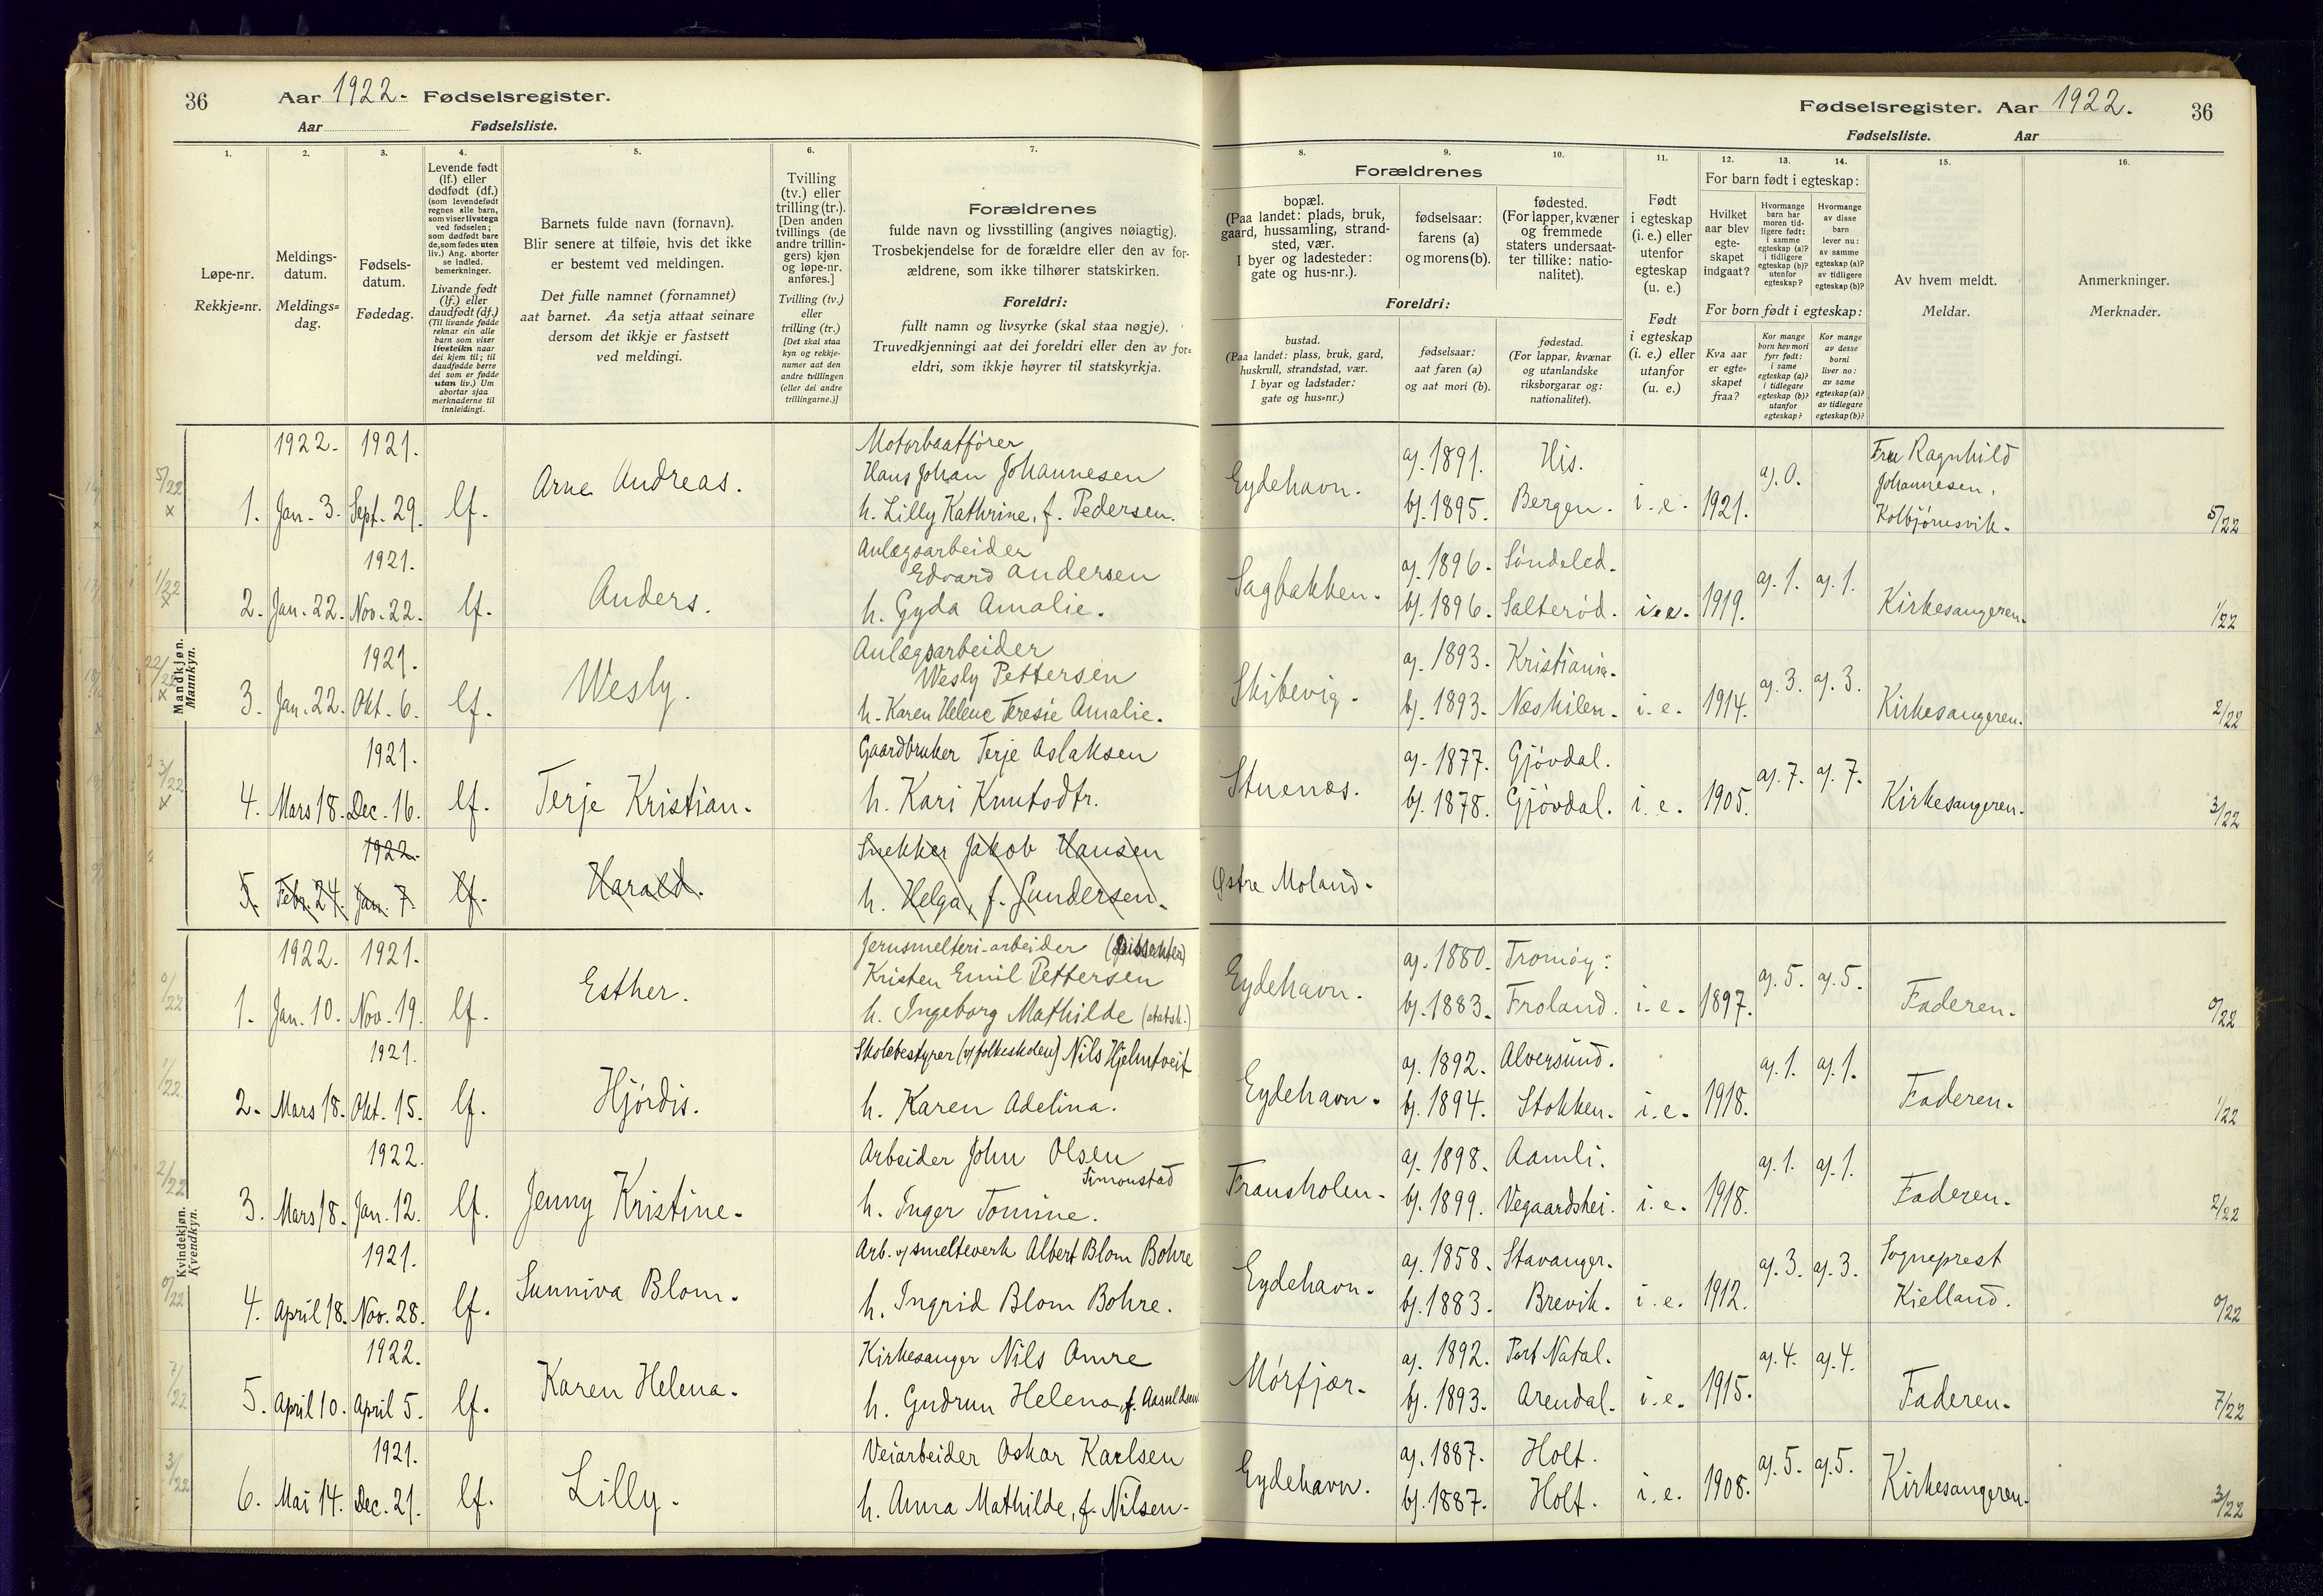 36 Aar 1922. Fødselsregister.
Aar Fødselsliste.
Fødselsregister. Aar 1922. 36
Fødselsliste. Aar
1. 2. 3. 4. 5. 6. 7.
Løpe-nr.
Rekkje=nr.
Meldings-
datum.
Meldings=
dag.
Fødsels-
datum.
Fødedag.
Levende født
(lf.) eller
dødfødt (df.)
(som levendefødt
regnes alle barn,
som viser livstegn
ved fødselen;
som dødfødt bare
de, som fødes uten
liv.) Ang. aborter
se indled.
bemerkninger.
Livande født
(lf.) eller
daudfødt (df.)
(Til livande fødde
reknar ein alle
barn som viser
livsteikn naar
dei kjem til; til
daudfødde berre
dei som er fødde
utan liv.) Um
abortar sjaa
merknaderne til
innleidingi.
Barnets fulde navn (fornavn).
Blir senere at tilføie, hvis det ikke
er bestemt ved meldingen.
Det fulle namnet (fornamnet)
aat barnet. Aa setja attaat seinare
dersom det ikkje er fastsett
ved meldingi.
Tvilling
(tv.) eller
trilling (tr.).
[Den anden
tvillings (de
andre trillin-
gers) kjøn
og løpe-nr.
anføres.]
Tvilling (tv.)
eller
trilling (tr.)
[Det skal staa
kyn og rekkje-
numer aat den
andre tvillingen
(eller dei andre
trillingarne.)]
Forældrenes
fulde navn og livsstilling (angives nøiagtig).
Trosbekjendelse for de forældre eller den av for-
ældrene, som ikke tilhører statskirken.
Foreldri:
fullt namn og livsyrke (skal staa nøgje).
Truvedkjenningi aat dei foreldri eller den av for=
eldri, som ikkje høyrer til statskyrkja.
8. 9. 10. 11. 12. 13. 14. 15. 16.
Forældrenes
bopæl.
(Paa landet: plads, bruk,
gaard, hussamling, strand-
sted, vær.
I byer og ladesteder:
gate og hus-nr.).
fødselsaar:
farens (a)
og morens (b).
fødested.
(For lapper, kvæner
og fremmede
staters undersaat-
ter tillike: natio-
nalitet).
Foreldri:
bustad.
(Paa landet: plass, bruk, gard,
huskrull, strandstad, vær.
I byar og ladstader:
gate og hus=nr.)
fødselsaar:
aat faren (a)
og aat mori (b).
fødestad.
(For lappar, kvænar
og utanlandske
riksborgarar og:
nationalitet).
Født
i egteskap
(i. e.) eller
utenfor
egteskap
(u. e.)
Født
i egteskap
(i. e.) eller
utanfor
(u. e.)
For barn født i egteskap:
Hvilket
aar blev
egte-
skapet
indgaat?
Hvormange
barn har
moren tid-
ligere født:
i samme
egteskap (a)?
i tidligere
egteskap (b)?
utenfor
egteskap?
Hvormange
av disse
barn
lever nu:
av samme
egteskap (a)?
av tidligere
egteskap (b)?
For born født i egteskap:
Kva aar
er egte=
skapet
fraa?
Kor mange
born hev mori
fyrr født:
i same
egteskap (a)?
i tidlegare
egteskap (b)?
utanfor
egteskap?
Kor mange
av desse
borni
liver no:
av same
egteskap (a)?
av tidlegare
egteskap (b)?
Av hvem meldt.
Meldar.
Anmerkninger.
Merknader.
Mandkjøn.
Mannkyn.
5/22 x
1922. 1921.
1. Jan. 3. Sept. 29. lf. Arne Andreas.
Motorbaatfører
Hans Johan Johannesen
h. Lilly Kathrine, f. Pedersen.
Eydehavn. a). 1891. His.
b). 1895. Bergen. i. e. 1921. a). 0.
Fru Ragnhild
Johannesen,
Kolbjørnsvik. 5/22
1/22 x
1921.
2. Jan. 22. Nov. 22. lf. Anders.
Anlægsarbeider
Edvard Andersen
h. Gyda Amalie.
Sagbakken. a). 1896. Søndeled.
b). 1896. Salterød. i. e. 1919. a). 1. a). 1. Kirkesangeren. 1/22
1921.
3. Jan. 22. Okt. 6. lf. Wesly.
Anlægsarbeider
Wesly Pettersen
h. Karen Helene Teresie Amalie.
Skibevig. a). 1893. Kristiania.
b). 1893. Neskilen. i. e. 1914. a). 3. a). 3. Kirkesangeren. 2/22
3/22 x
1921.
4. Mars 18. Dec. 16. lf. Terje Kristian.
Gaardbruker Terje Aslaksen
h. Kari Knutsdtr.
Stuenes. a). 1877. Gjøvdal.
b). 1878. Gjøvdal. i. e. 1905. a). 7. a). 7. Kirkesangeren. 3/22
1922.
5. Febr. 24. Jan. 7. lf. Harald.
Snekker Jakob Hansen
h. Helga, f. Gundersen.
Østre Moland.
Kvindekjøn.
Kvendkyn.
0/22
1922. 1921.
1. Jan. 10. Nov. 19. lf. Esther.
Jernsmelteri-arbeider (dissenter)
Kristen Emil Pettersen
h. Ingeborg Mathilde (statsk.)
Eydehavn. a). 1880. Tromøy.
b). 1883. Froland. i. e. 1897. a). 5. a). 5. Faderen. 0/22
1/22
1921.
2. Mars 18. Okt. 15. lf. Hjørdis.
Skolebestyrer (v/folkeskolen) Nils Hjelmtveit
h. Karen Adelina.
Eydehavn. a). 1892. Alversund.
b). 1894. Stokken. i. e. 1918. a). 1. a). 1. Faderen. 1/22
2/22
1922.
3. Mars 18. Jan. 12. lf. Jenny Kristine.
Arbeider John Olsen
Simonstad
h. Inger Tomine.
Fransholen. a). 1898. Aamli.
b). 1899. Vegaardshei. i. e. 1918. a). 1. a). 1. Faderen. 2/22
0/22
1921.
4. April 18. Nov. 28. lf. Sunniva Blom.
Arb. v/ smelteverk Albert Blom Bohre
h. Ingrid Blom Bohre.
Eydehavn. a). 1858. Stavanger.
b). 1883. Brevik. i. e. 1912. a). 3. a). 3.
Sogneprest
Kielland. 0/22
7/22
1922.
5. April 10. April 5. lf. Karen Helena.
Kirkesanger Nils Omre
h. Gudrun Helena, f. Aasuldsen
Mørfjær. a). 1892. Port Natal.
b). 1893. Arendal. i. e. 1915. a). 4. a). 4. Faderen. 7/22
3/22
1921.
6. Mai 14. Dec. 21. lf. Lilly.
Veiarbeider Oskar Karlsen
h. Anna Mathilde, f. Nilsen.
Eydehavn. a). 1887. Holt.
b). 1887. Holt. i. e. 1908. a). 5. a). 5. Kirkesangeren. 3/22